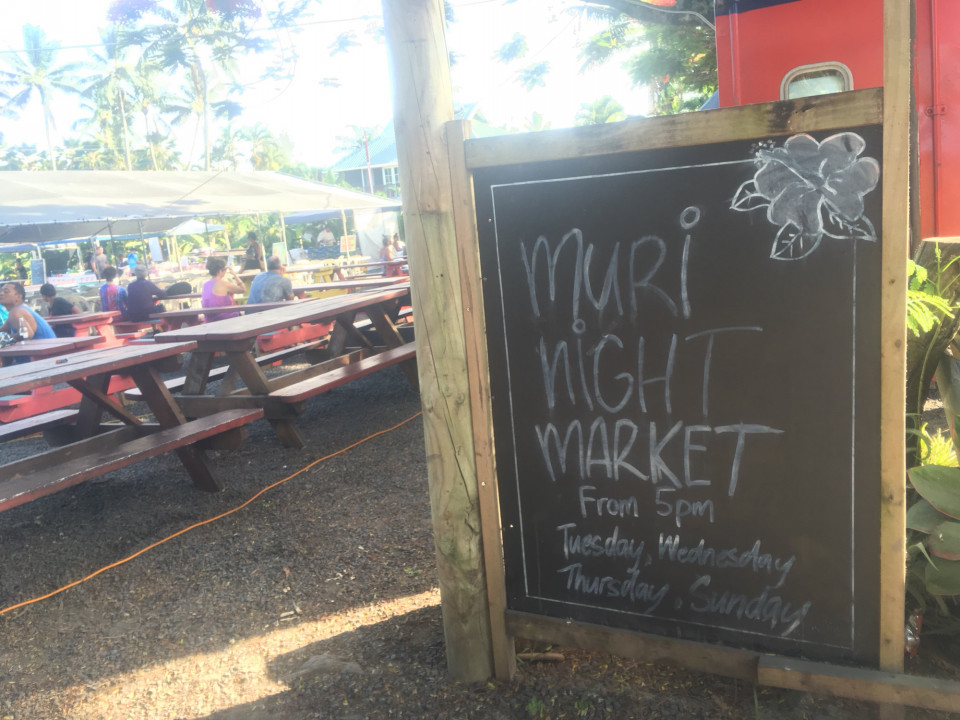 MURi
NiGHT
MARKET
From 5pm
Tuesday, Wednesday
Thursday, Sunday